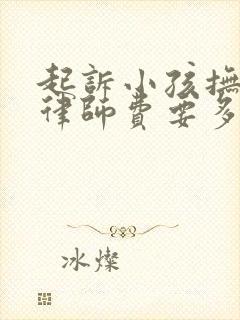 起訴小孩撫
律師費要多
冰燦